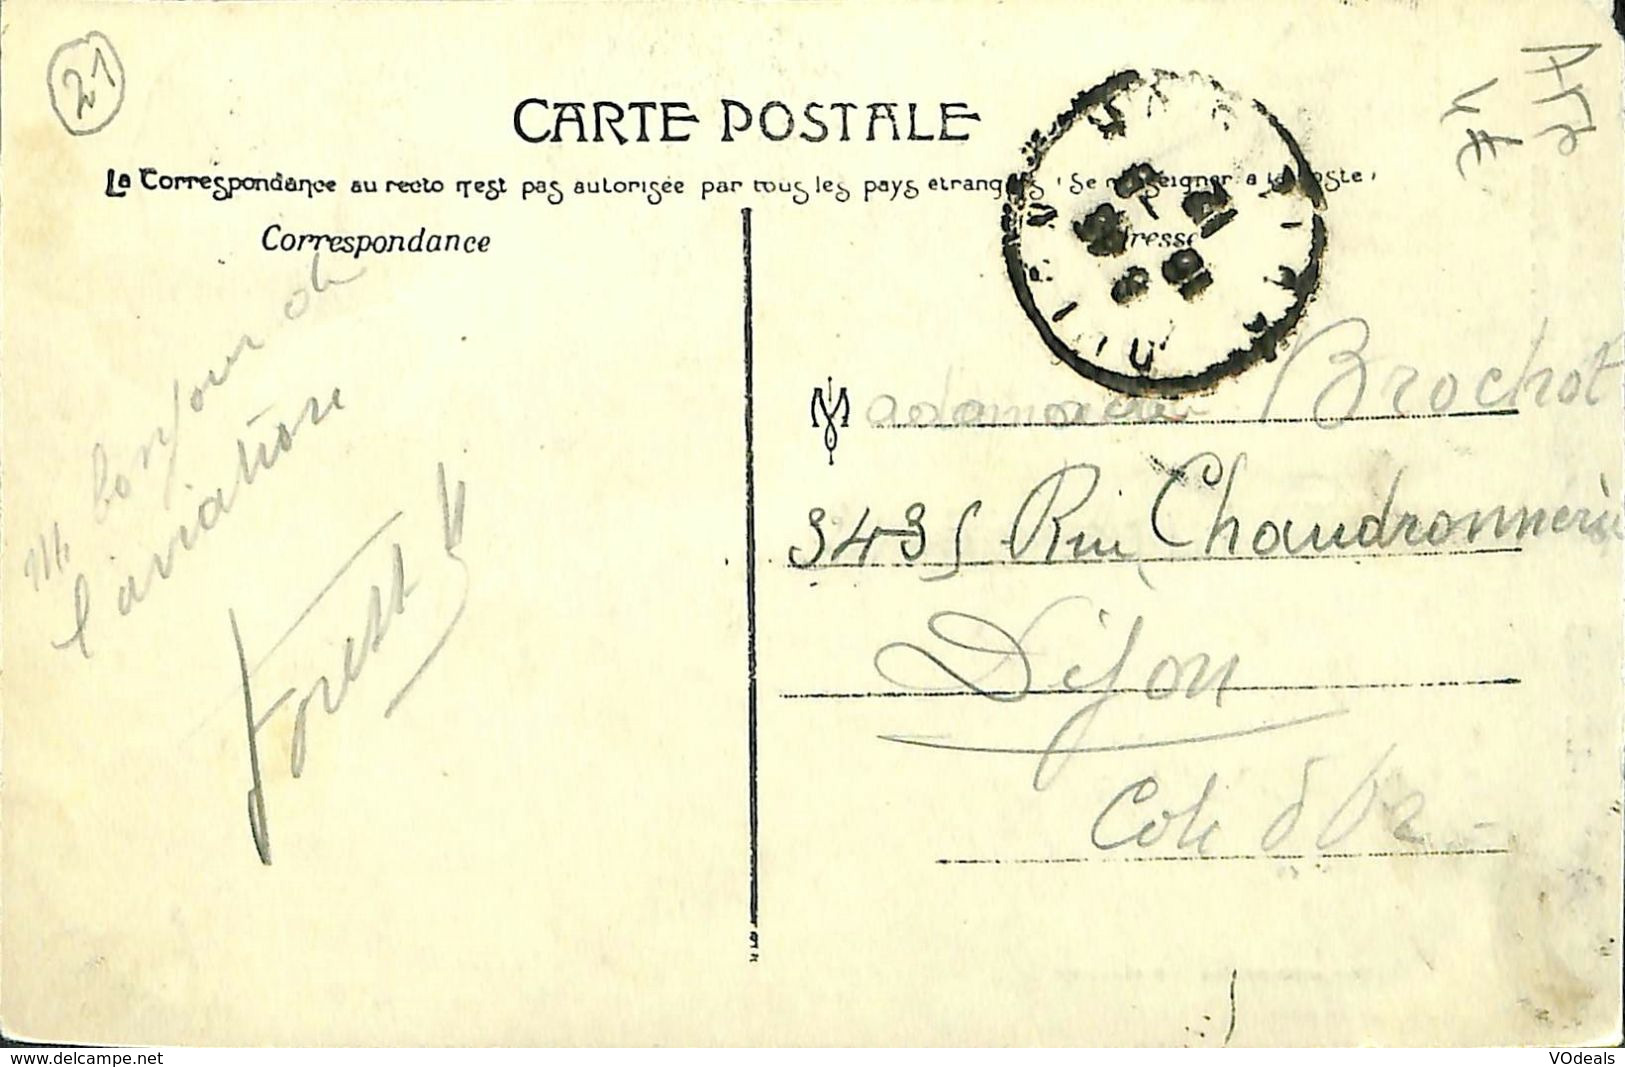 21
CARTE POSTALE
La Correspondance au recto n'est pas autorisée par tous les pays étrangers (Se renseigner à la Poste)
Correspondance
Adresse
bonjour de
l'aviation
Madame Brochot
3435 Rue Chaudronnerie
Dijon
Cote d'Or
delcampe.net
VOdeals